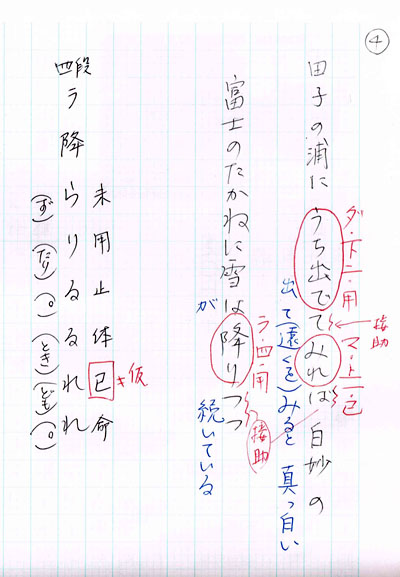 ④
田子の浦にうち出でてみれば白妙の
ダ・下二・用
接助
マ・上一・已
出て(遠くを)みると真っ白い
富士のたかねに雪は降りつつ
ラ・四・用
接助
が
続いている
未用止体已命
キ仮
四段ラ降らりるるれれ
(ず)(たり)(。)(とき)(ども)(。)